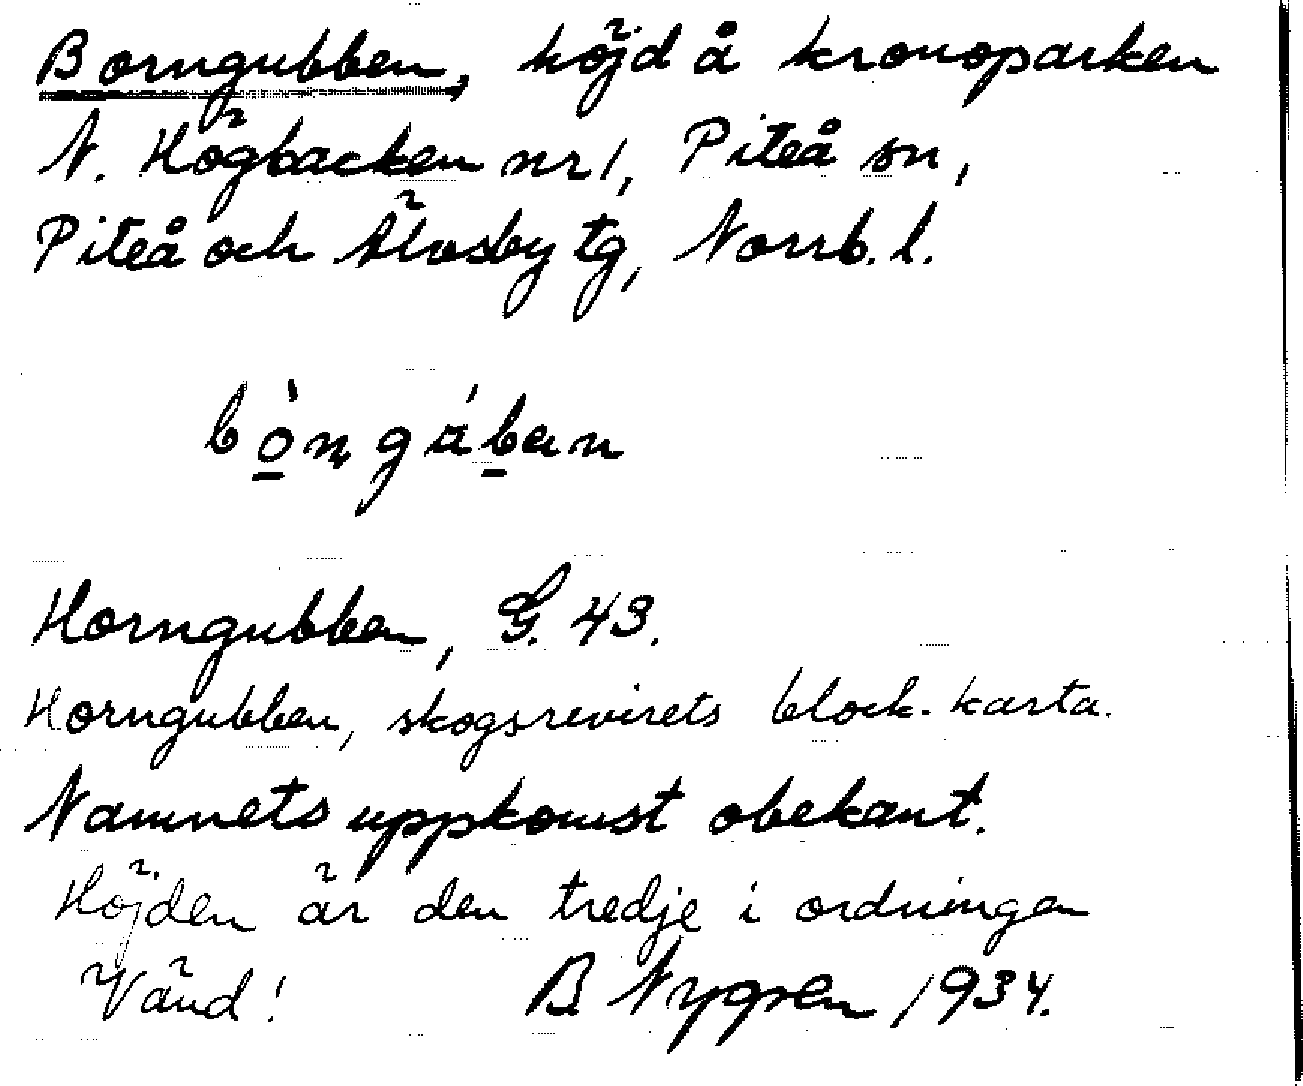 Borngubben, höjd å kronoparken
N. Högbacken nr 1, Piteå sn,
Piteå och Älvsby tg, Norrb. l.
Horngubben, G. 43.
Horngubben, skogsrevirets block-karta.
Namnets uppkomst obekant.
Höjden är den tredje i ordningen
Vänd! B Nygren 1934.